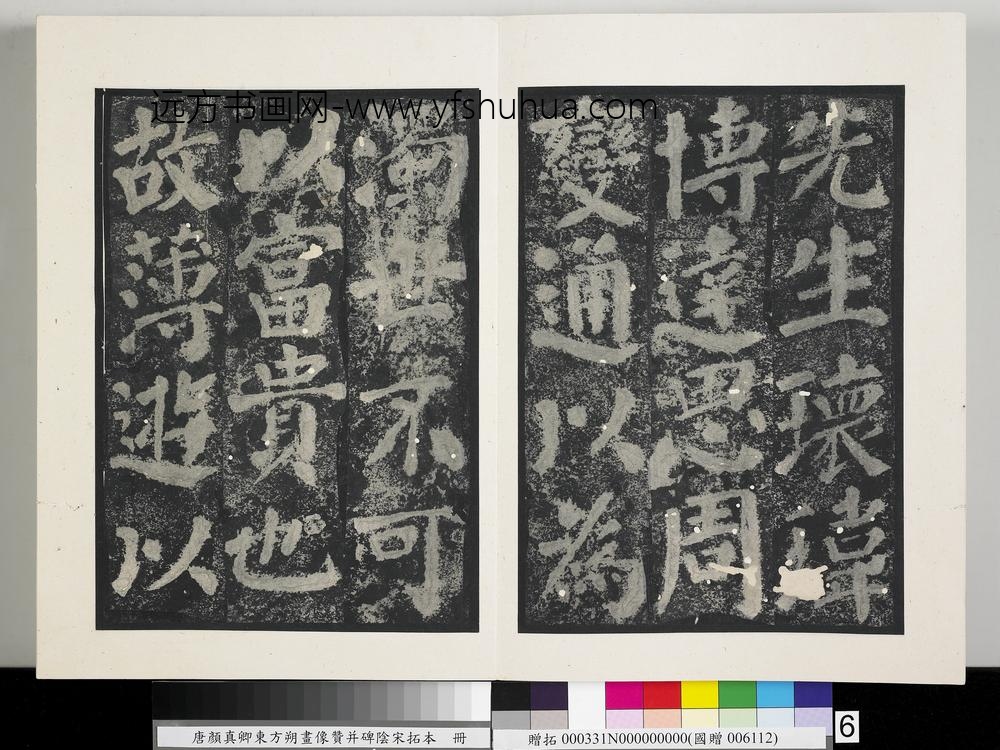 远方书画网-www.yfshuhua.com
先生瓌瑋
博達思周
變通以為
濁世不可
以富貴也
故薄遊以
唐顏真卿東方朔畫像贊并碑陰宋拓本 冊
贈拓 000331N000000000(國贈 006112)
6